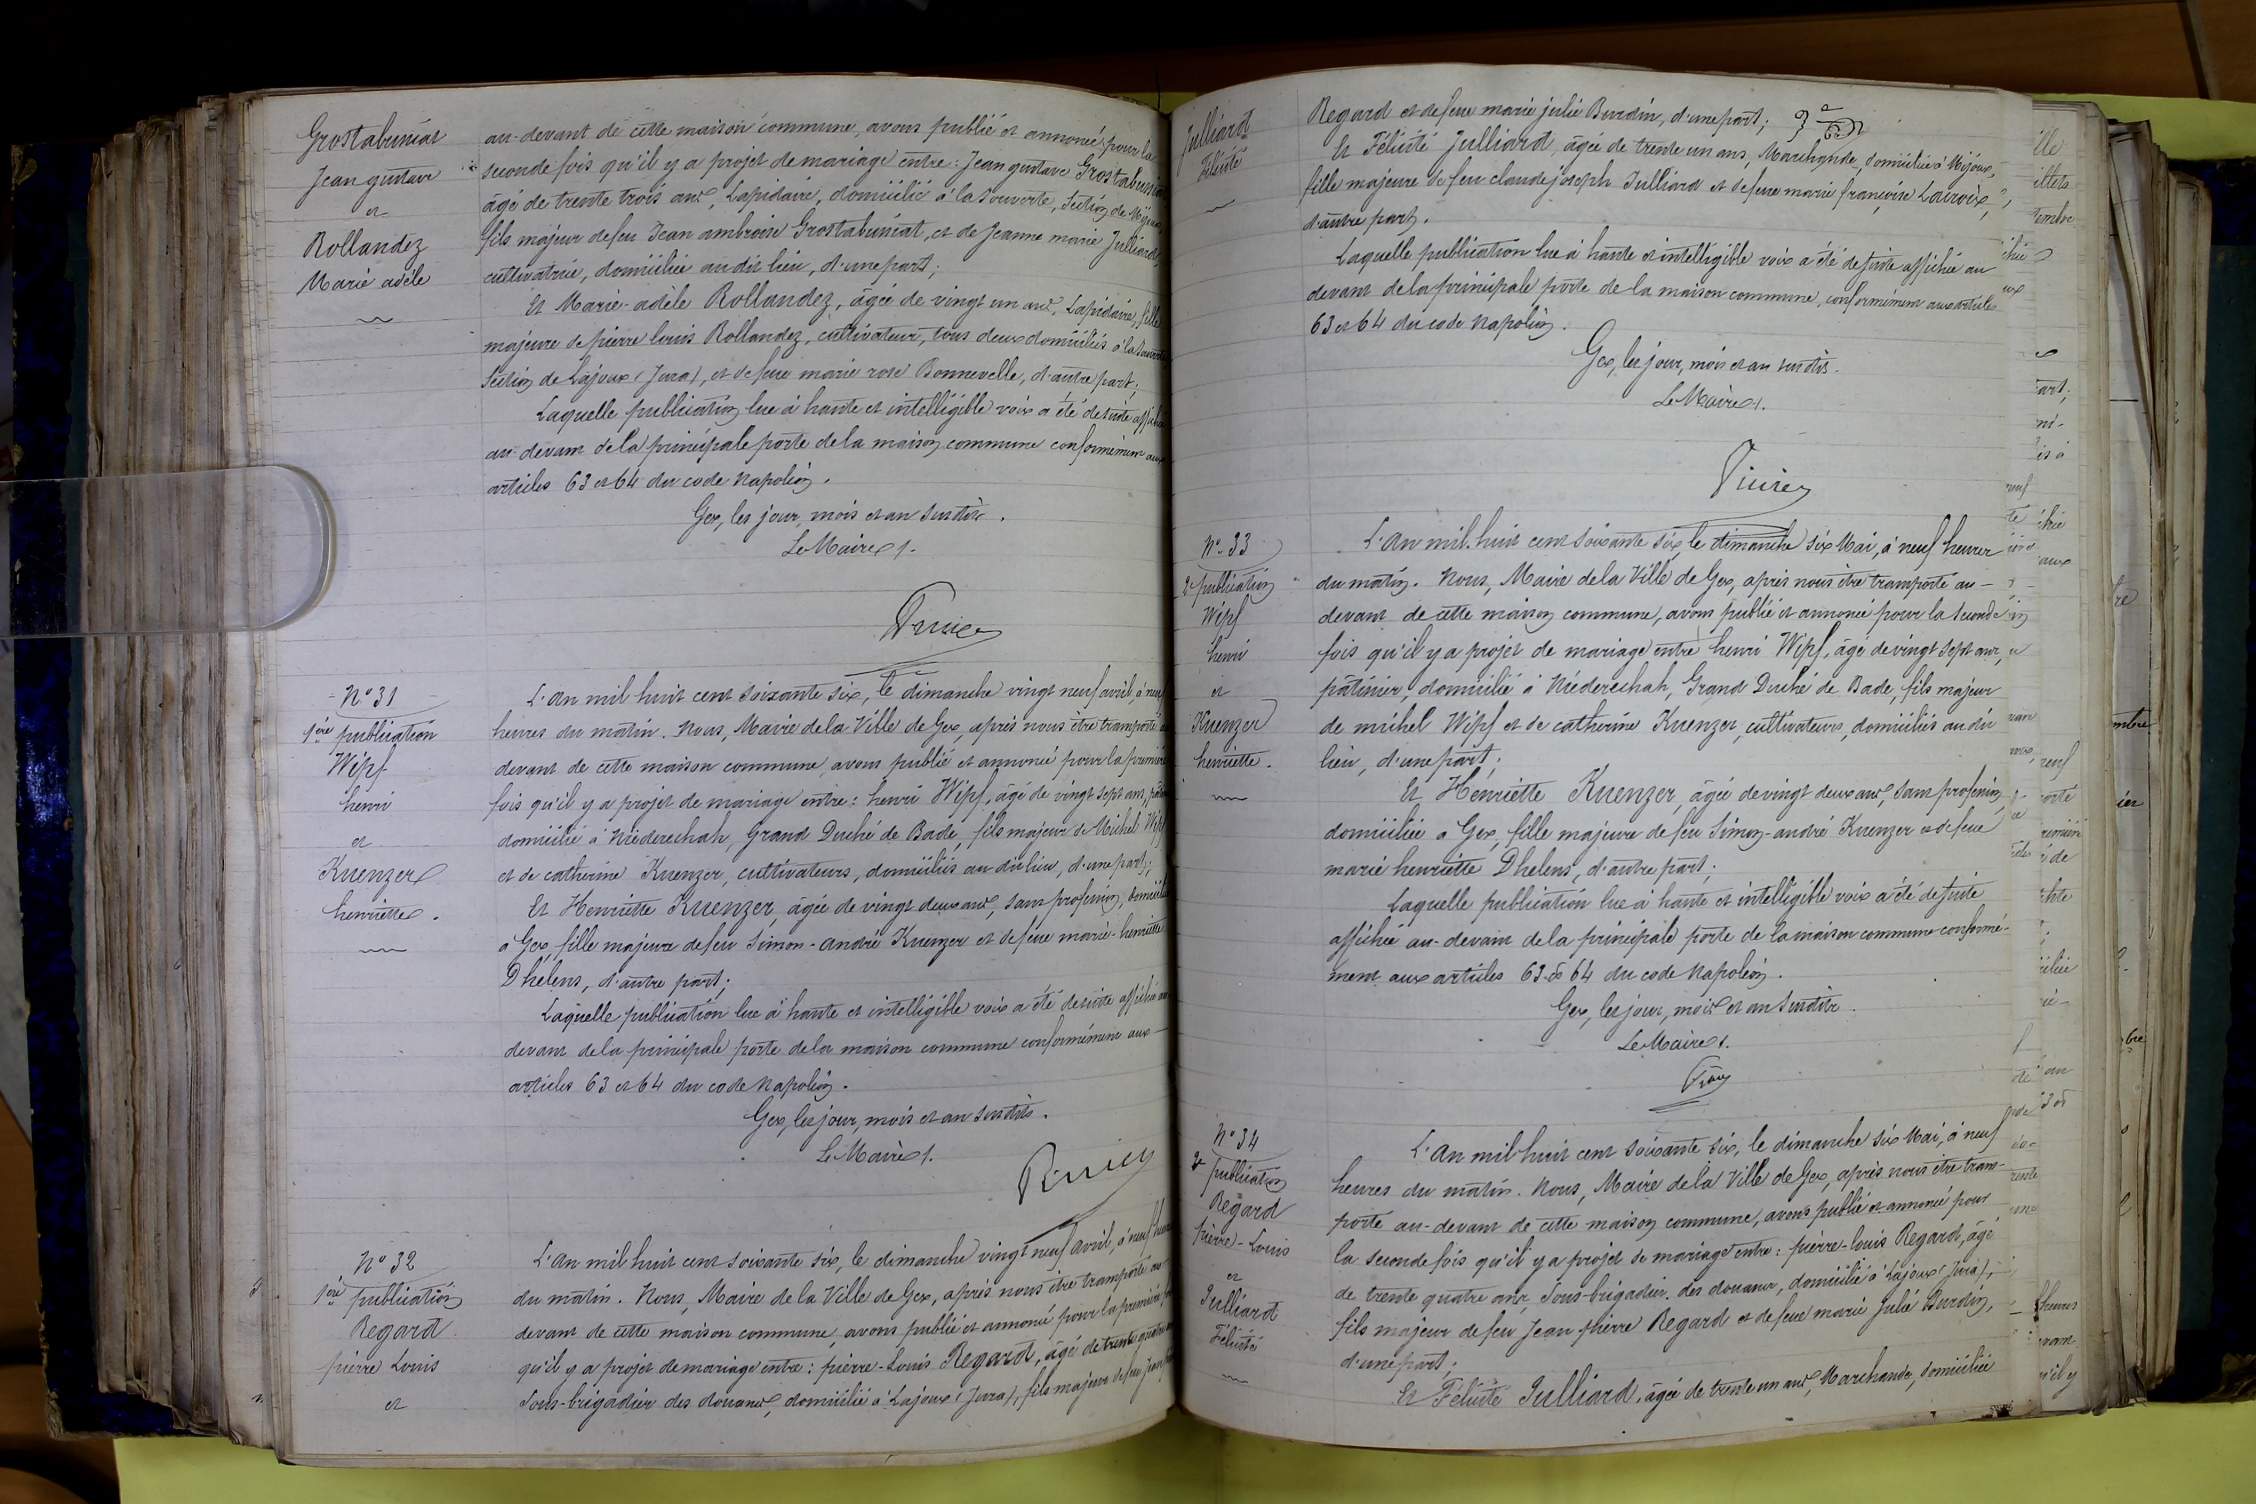 Grostabussiat
Jean gustave
et
Rollandez
Marie adèle
au-devant de cette maison commune, avons publié et annoncé pour la
seconde fois qu'il y a projet de mariage entre : Jean gustave
âgé de trente trois ans, Lapidaire, domicilié à la
fils majeur de feu Jean ambroise et de Jeanne marie Julliard,
cultivatrice, domiciliée au dit lieu, d'une part ;
Et Marie-adèle Rollandez, âgée de vingt un ans, Lapidaire, fille
majeure de pierre louis Rollandez, cultivateur, tous deux domiciliés à la
Section de Lajoux (Jura), et de feue marie rose Bonneville, d'autre part ;
Laquelle publication lue à haute et intelligible voix a été de suite affichée
au-devant de la principale porte de la maison commune conformément aux
articles 63 et 64 du code Napoléon.
Gex, les jour, mois et an susdits.
Le Maire
N° 31
1ère publication
Wipf
henri
et
Kuenzer
henriette.
L'an mil huit cent soixante six, le dimanche vingt neuf avril, à neuf
heures du matin. Nous, Maire de la Ville de Gex, après nous être transporté
devant de cette maison commune, avons publié et annoncé pour la première
fois qu'il y a projet de mariage entre : henri Wipf, âgé de vingt sept ans,
domicilié à Niederechah, Grand Duché de Bade, fils majeur de Michel Wipf
et de catherine Kuenzer, cultivateurs, domiciliés au dit lieu, d'une part ;
Et Henriette Kuenzer, âgée de vingt deux ans, sans profession,
à Gex, fille majeure de feu Simon-andré Kuenzer et de feue marie-henriette
Dhelens, d'autre part ;
Laquelle publication lue à haute et intelligible voix a été de suite affichée au
devant de la principale porte de la maison commune conformément aux
articles 63 et 64 du code Napoléon.
Gex, les jour, mois et an susdits.
Le Maire
N° 32
1ère publication
Regard
pierre Louis
et
L'an mil huit cent soixante six, le dimanche vingt neuf avril, à neuf heures
du matin. Nous, Maire de la Ville de Gex, après nous être transporté au
devant de cette maison commune, avons publié et annoncé pour la première fois
qu'il y a projet de mariage entre : pierre-Louis Regard, âgé de trente quatre ans
Sous-brigadier des douanes, domicilié à Lajoux (Jura), fils majeur de feu Jean
Julliard
Félicité
Regard et de feue marie julie Burdin, d'une part ;
Et Félicité Julliard, âgée de trente un ans, Marchande, domiciliée à Mijoux,
fille majeure de feu claude joseph Julliard et de feue marie françoise Lacroix,
d'autre part.
Laquelle publication lue à haute et intelligible voix a été de suite affichée au
devant de la principale porte de la maison commune, conformément aux article
63 et 64 du code Napoléon.
Gex, les jour, mois et an susdits.
Le Maire
N° 33
2e publication
Wipf
henri
et
Kuenzer
henriette.
L'an mil huit cent soixante six, le dimanche six Mai, à neuf heures
du matin. Nous, Maire de la Ville de Gex, après nous être transporté au-
devant de cette maison commune, avons publié et annoncé pour la seconde
fois qu'il y a projet de mariage entre henri Wipf, âgé de vingt sept ans,
domicilié à Niederechah, Grand Duché de Bade, fils majeur
de michel Wipf et de catherine Kuenzer, cultivateurs, domiciliés au dit
lieu, d'une part ;
Et Henriette Kuenzer, âgée de vingt deux ans, sans profession,
domiciliée à Gex, fille majeure de feu Simon-andré Kuenzer et de feue
marie henriette Dhelens, d'autre part ;
Laquelle publication lue à haute et intelligible voix a été de suite
affichée au-devant de la principale porte de la maison commune conformé-
ment aux articles 63 & 64 du code Napoléon.
Gex, les jour, mois et an susdits.
Le Maire
N° 34
2e publication
Regard
pierre-Louis
et
Julliard
Félicité
L'an mil huit cent soixante six, le dimanche six Mai, à neuf
heures du matin. Nous, Maire de la Ville de Gex, après nous être trans-
porté au-devant de cette maison commune, avons publié et annoncé pour
la seconde fois qu'il y a projet de mariage entre : pierre-louis Regard, âgé
de trente quatre ans, Sous-brigadier des douanes, domicilié à Lajoux (Jura),
fils majeur de feu Jean pierre Regard et de feue marie julie Burdin,
d'une part ;
Et Félicité Julliard, âgée de trente un ans, Marchande, domiciliée